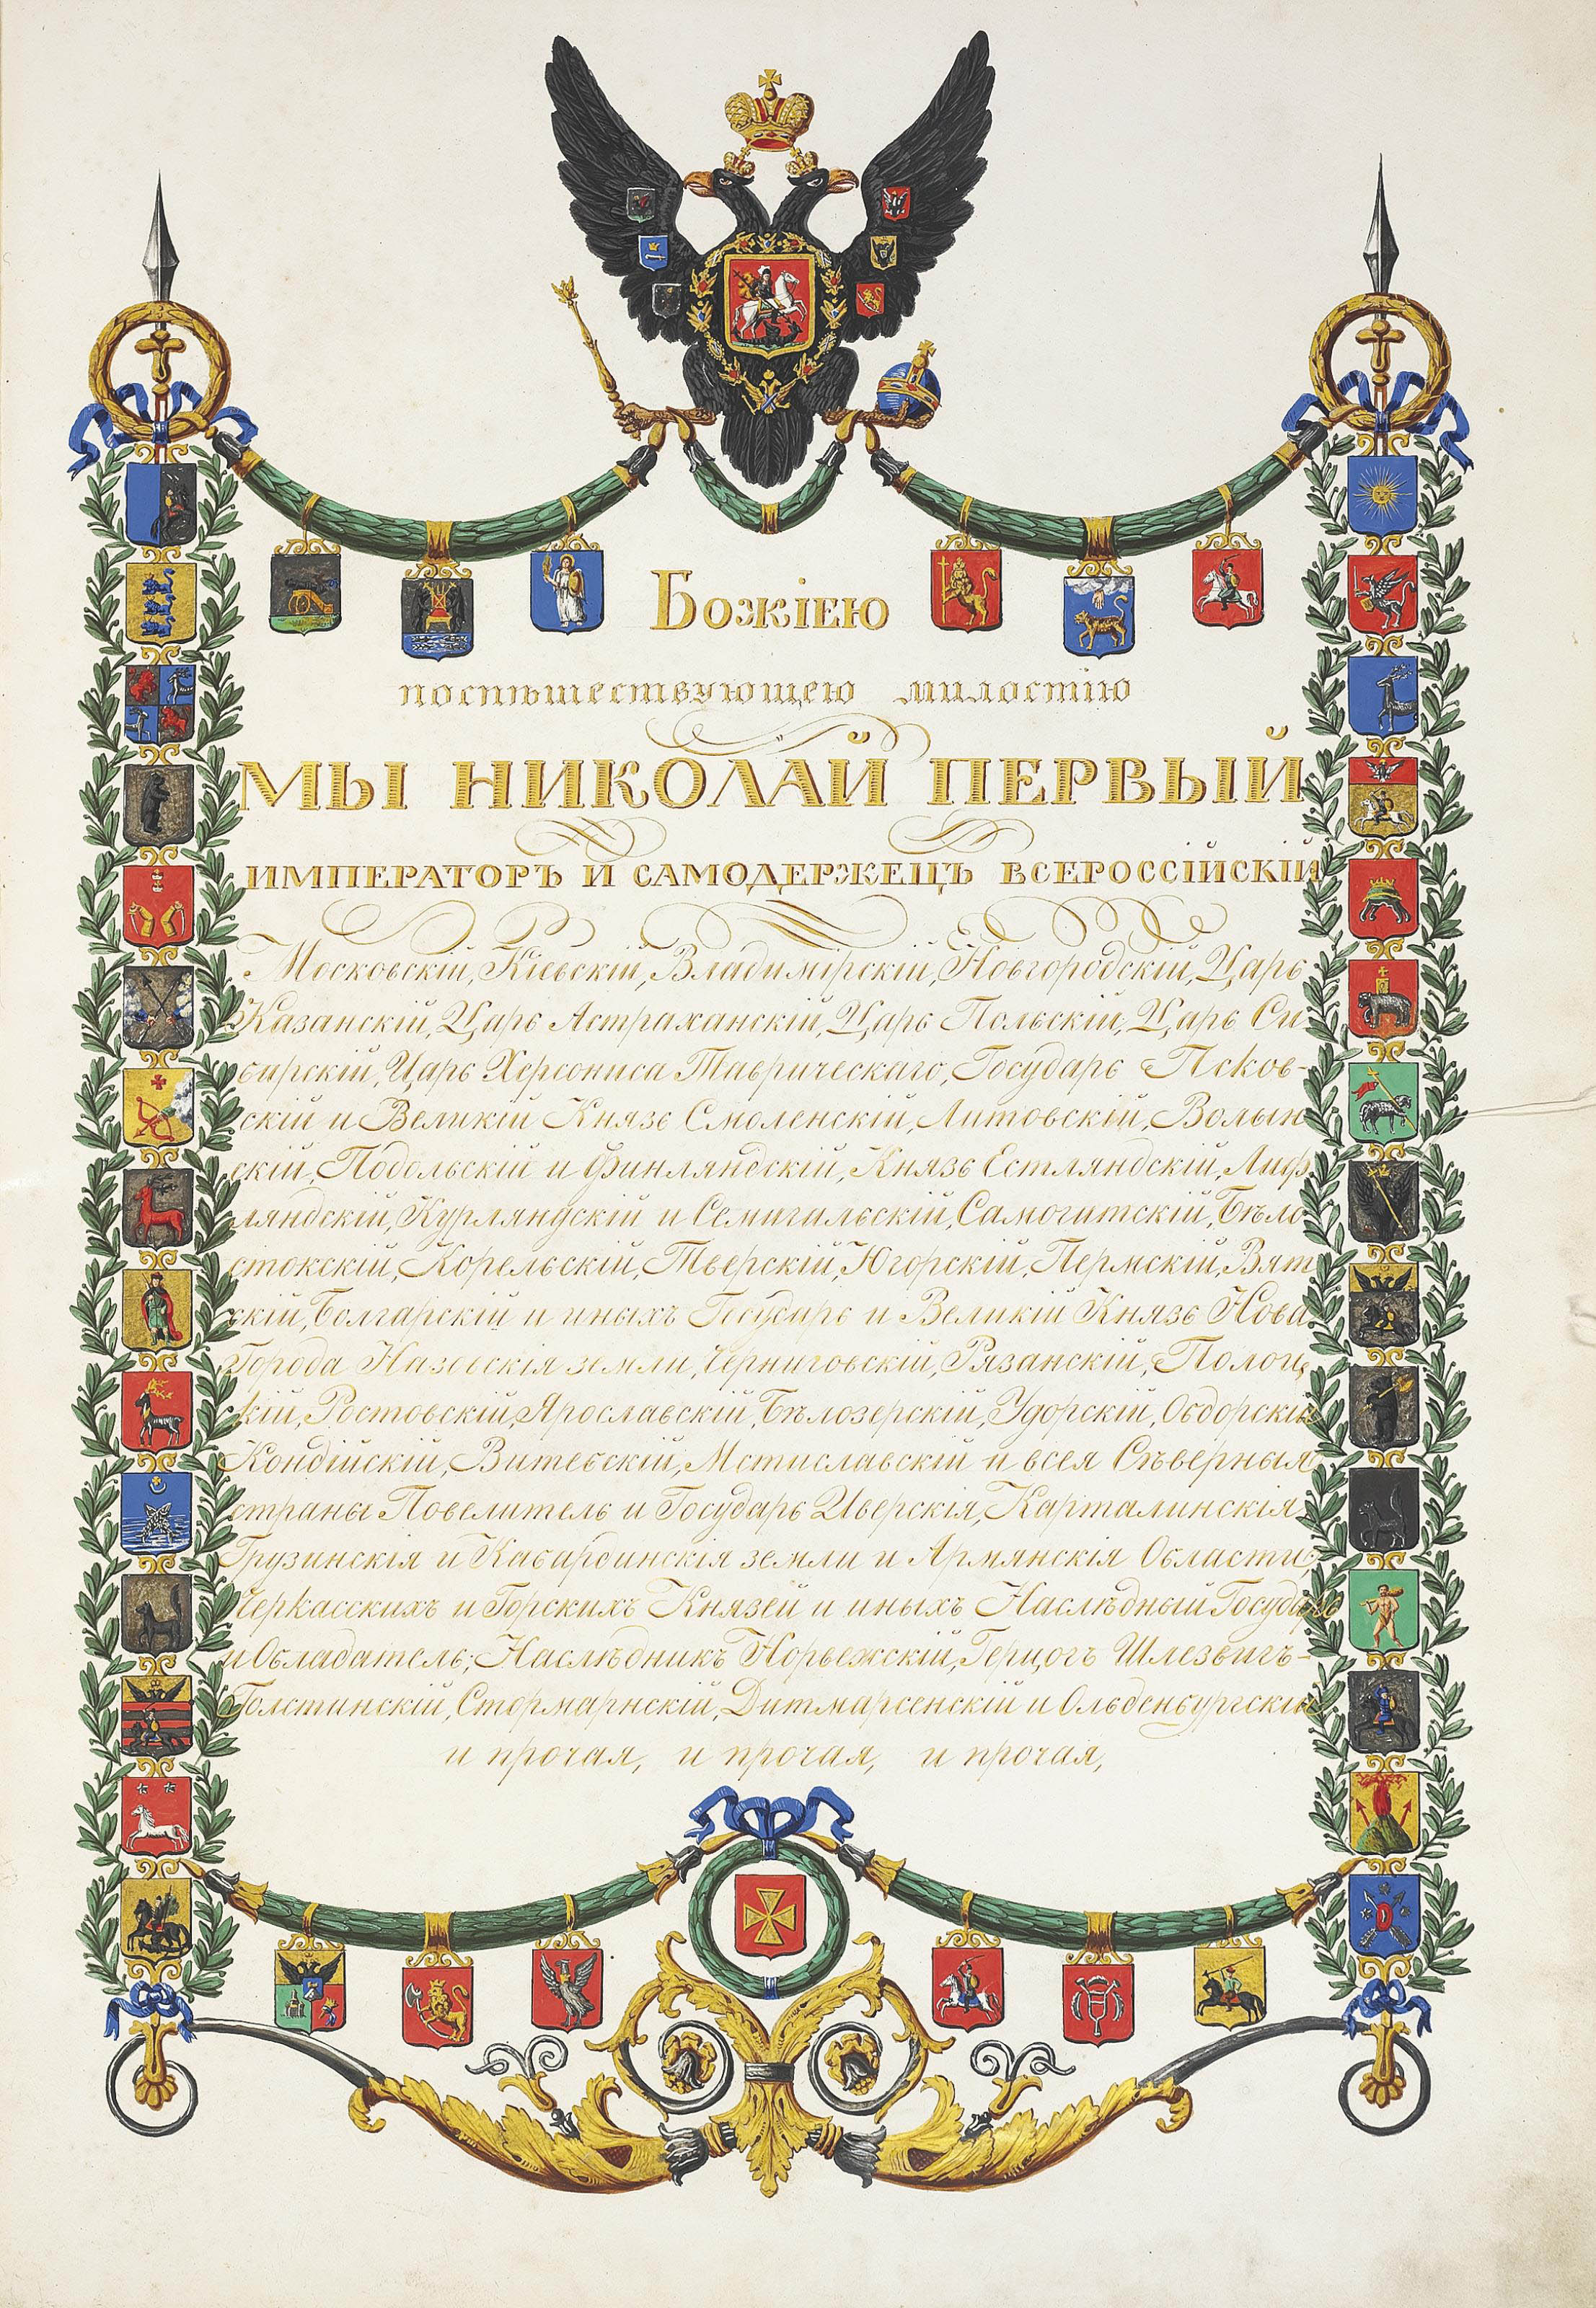 Божіею
поспѣшествующею милостію
МЫ НИКОЛАЙ ПЕРВЫЙ
ИМПЕРАТОРЪ И САМОДЕРЖЕЦЪ ВСЕРОССІЙСКІЙ
Московскій, Кіевскій, Владимірскій, Новгородскій, Царь
Казанскій, Царь Астраханскій, Царь Польскій, Царь Си-
бирскій, Царь Херсониса Таврическаго, Государь Псков-
скій и Великій Князь Смоленскій, Литовскій, Волын
скій, Подольскій и Финляндскій, Князь Естляндскій, Лиф
ляндскій, Курляндскій и Семигальскій, Самогитскій, Бѣло
стокскій, Корельскій, Тверскій, Югорскій, Пермскій, Вят
скій, Болгарскій и иныхъ Государь и Великій Князь Нова
Города Низовскія земли, Черниговскій, Рязанскій, Полоц
кій, Ростовскій, Ярославскій, Бѣлозерскій, Удорскій, Обдорскій
Кондійскій, Витебскій, Мстиславскій и всея Сѣверныя
страны Повелитель и Государь Иверскія, Карталинскія,
Грузинскія и Кабардинскія земли и Армянскія Области,
Черкасскихъ и Горскихъ Князей и иныхъ Наслѣдный Государь
и Обладатель; Наслѣдникъ Норвежскій, Герцогъ Шлезвигъ-
Голстинскій, Стормарнскій, Дитмарсенскій и Ольденбургскій
и прочая, и прочая, и прочая,